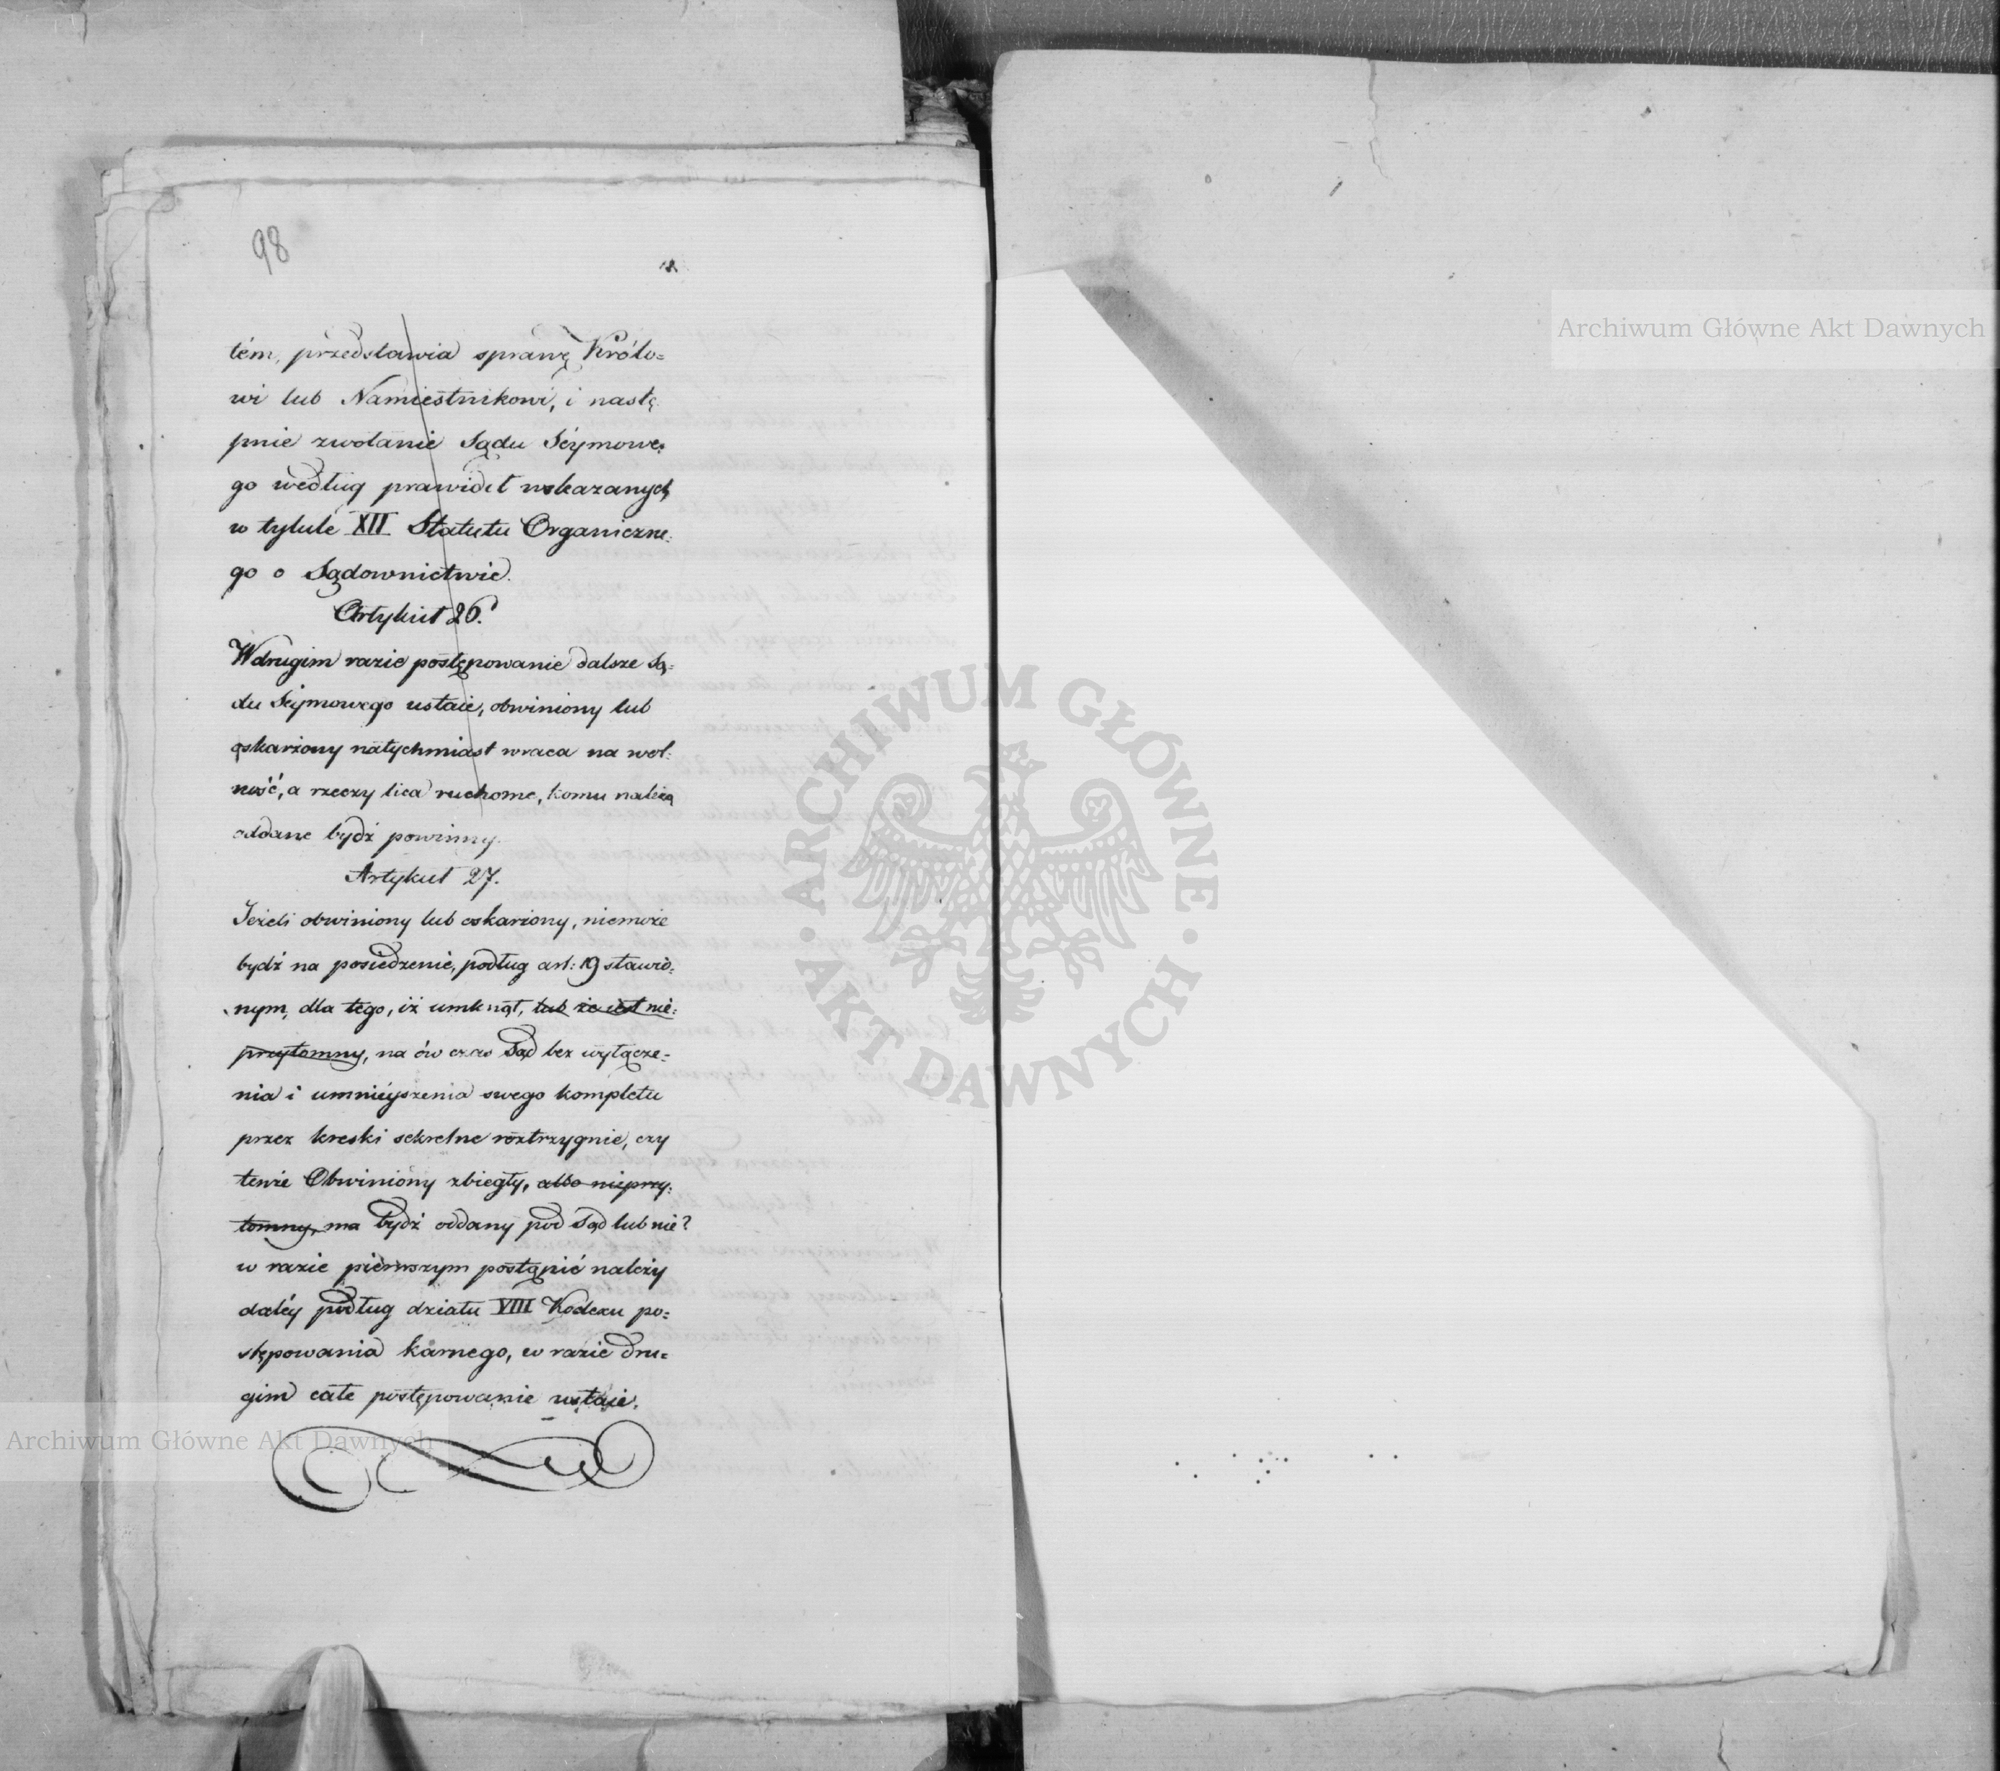 98
tém, przedstawia sprawę Królo=
wi lub Namiestnikowi, i nastę
pnie zwołanie Sądu Séymowe=
go według prawideł wskazanych
w tytule XII Statutu Organiczne=
go o Sądownictwie.
Artykuł 26.
W drugim razie postępowanie dalsze Są=
du Séymowego ustaie, obwiniony lub
oskarżony natychmiast wraca na wol=
ność, a rzeczy lica ruchome, komu należą
oddane bydź powinny.
Artykuł 27.
Jeżeli obwiniony lub oskarżony, niemoże
bydź na posiedzenie, podług art: 19 stawio=
nym, dla tego, iż umknął, lub że iest nie=
przytomny, na ów czas Sąd bez wyłącze=
nia i umniéyszenia swego kompletu
przez kreski sekretne roztrzygnie, czy
tenże Obwiniony zbiegły, albo nieprzy=
tomny, ma bydź oddany pod Sąd lub nie?
w razie pierwszym postąpić należy
daléy podług działu VIII Kodexu po=
stępowania karnego, w razie dru=
gim całe postępowanie ustaie.
Archiwum Główne Akt Dawnych
Archiwum Główne Akt Dawnych
ARCHIWUM GŁÓWNE
AKT DAWNYCH